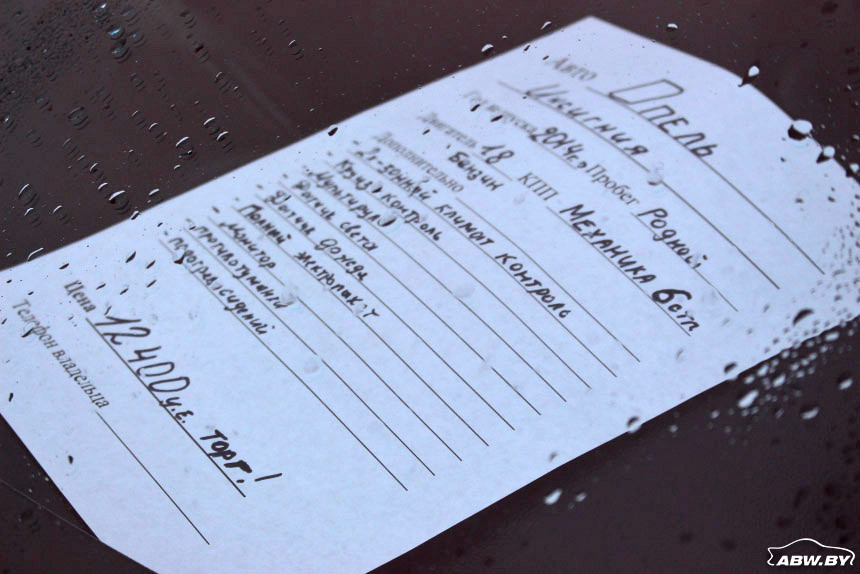 Авто Опель
Инсигния
Год выпуска 2014г., Пробег Родной
Двигатель 18 Бензин КПП Механика 6ст
Дополнительно
- 2х-зонный климат контроль
- Круиз контроль
- Мультируль
- Датчик света
- Датчик дождя
- Полный электропакет
- Монитор
- противотуманки
- подогрев сидений
Цена 12400 у.е. Торг!
Телефон владельца
ABW.BY